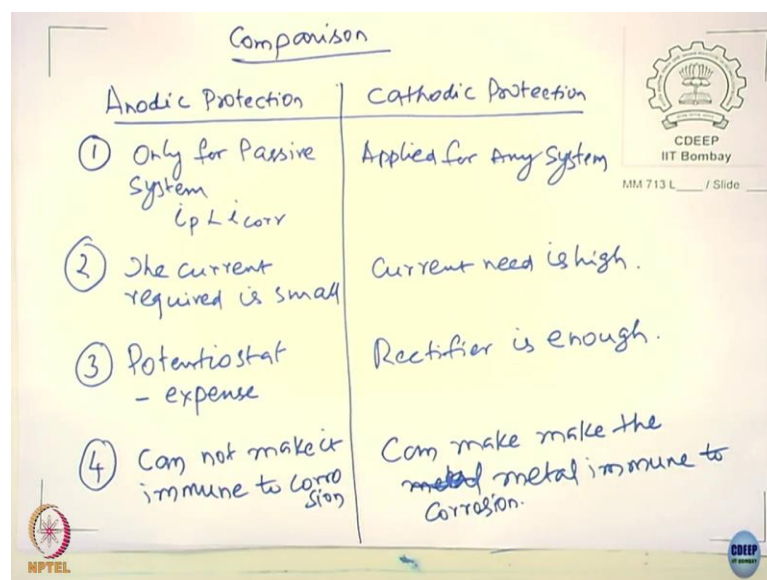 Comparison
Anodic Protection
Cathodic Protection
① Only for Passive
System
ip < icorr
Applied for Any System
② The current
required is small
Current need is high.
③ Potentiostat
- expense
Rectifier is enough.
④ Can not make it
immune to corro
sion
Can make make the
metal immune to
corrosion.
CDEEP
IIT Bombay
MM 713 L___ / Slide ___
NPTEL
CDEEP
IIT BOMBAY